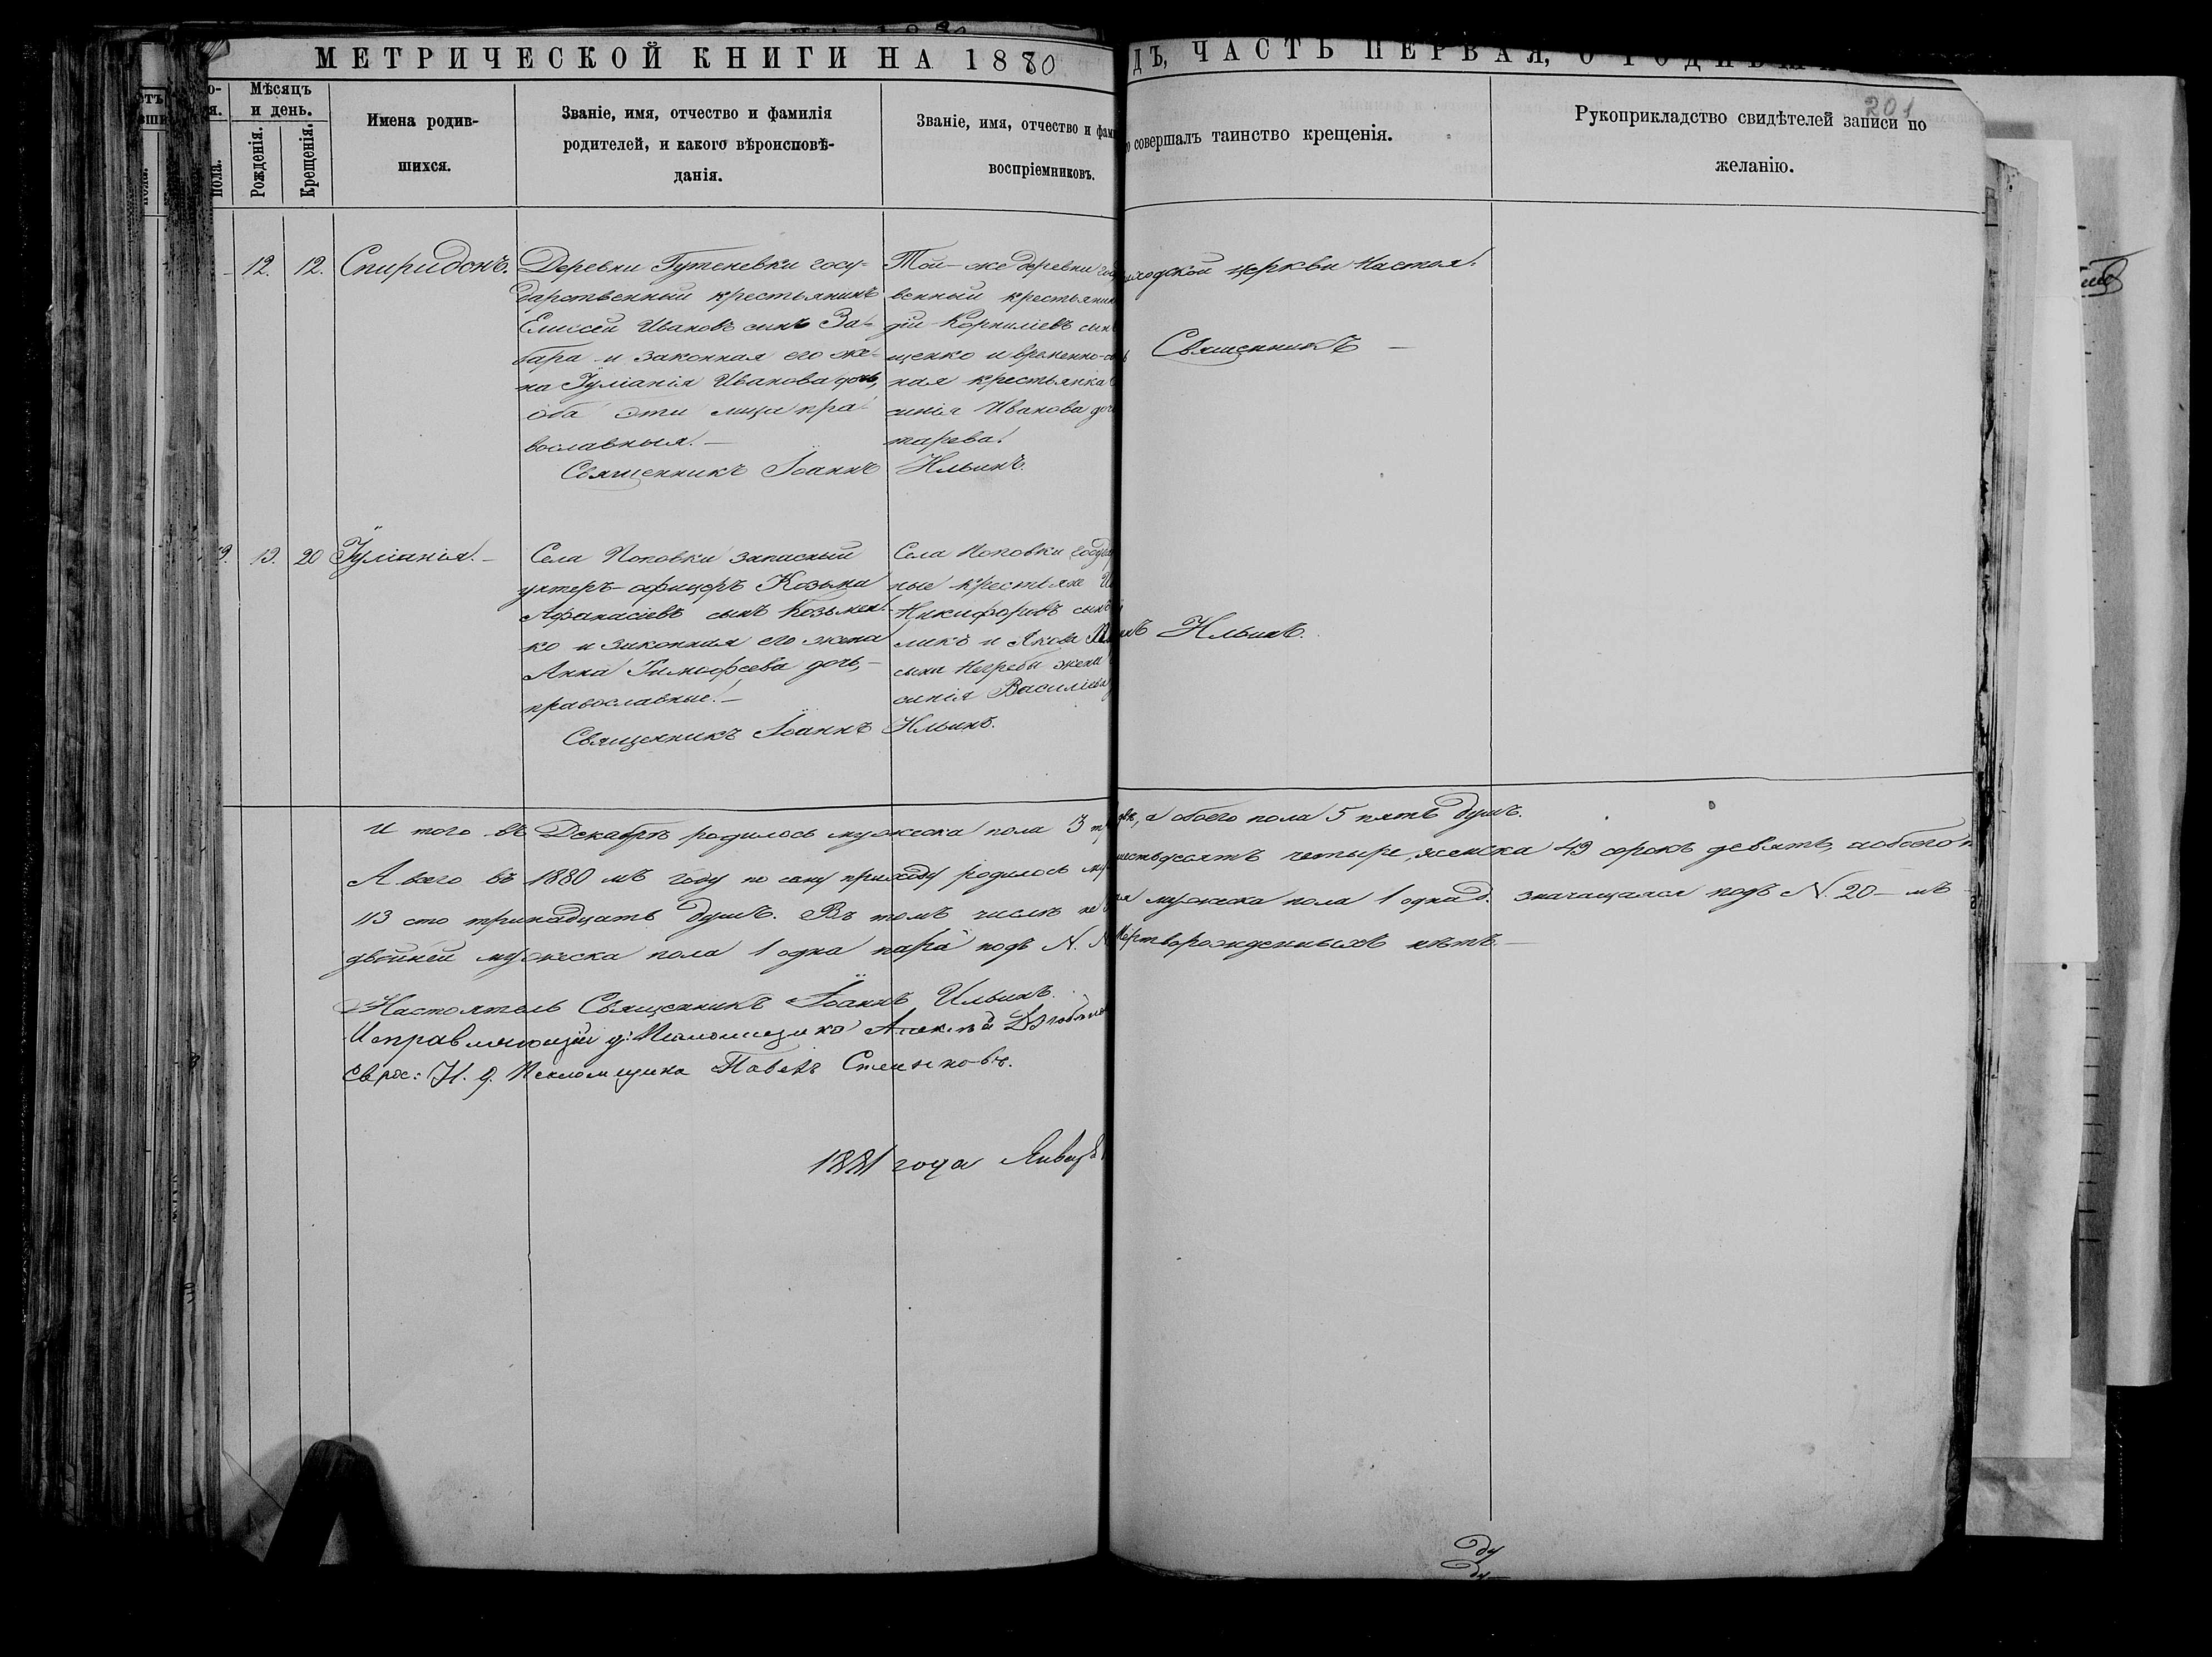 МЕТРИЧЕСКОЙ КНИГИ НА 1880
ДЪ, ЧАСТЬ ПЕРВАЯ, О
201
Мѣсяцъ
и день.
Рожденія.
Крещенія.
пола.
Имена родив-
шихся.
Званіе, имя, отчество и фамилія
родителей, и какого вѣроисповѣ-
данія.
Званіе, имя, отчество и фам
воспріемниковъ.
совершалъ таинство крещенія.
Рукоприкладство свидѣтелей записи по
желанію.
12. 12. Спиридонъ.
Деревни Гутеневки госу-
дарственный крестьянинъ
Елисей Ивановъ сынъ За-
бара и законная его же-
на Іуліанія Иванова дочь,
оба эти лица пра-
вославныя. —
Священникъ Іоаннъ Ильинъ.
Той-же деревни
венный крестьянин
дій Корниліевъ сын
щенко и временно-
ная крестьянка
синія Иванова доч
тарева.
церкви Настоя-
Священникъ —
13. 20 Іуліанія. —
Села Поповки запасный
унтеръ-офицеръ Козьма
Афанасіевъ сынъ Козьмен-
ко и законная его жена
Анна Тимофеева дочь, —
православные. —
Священникъ Іоаннъ Ильинъ.
Села Поповки
ные крестьяне
Никифоровъ сынъ
ликъ и Якова
сына Негребы жена
синія Василіева
Ильинъ.
И того въ Декабрѣ родилось мужеска пола 3
а обоего пола 5 пять душъ.
А всего въ 1880 мъ году по сему приходу родилось
шестьдесятъ четыре, женска 49 сорокъ девять, а обоего
113 сто тринадцать душъ. Въ томъ числѣ
мужеска пола 1 одна д. значащаяся подъ N. 20 — мъ
двойней мужеска пола 1 одна пара подъ N. N
Мертворожденныхъ нѣтъ. —
Настоятель Священникъ Іоаннъ Ильинъ.
Исправляющій д: Псаломщика Алексѣй
И. д. Псаломщика Павелъ
1881 года Январ